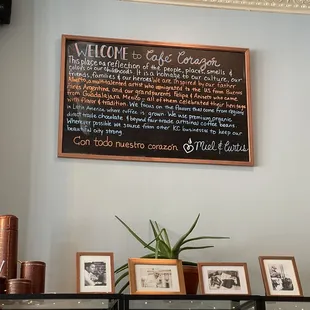 WELCOME to Café Corazón
This place is a reflection of the people, places, smells &
colors of our childhoods. It is a homage to our culture, our
friends, families & our heroes. We are inspired by our father
a multi-talented artist who immigrated to the US from Buenos
Aires Argentina, and our grandparents Felipa & Aniceto who came
from Guadalajara Mexico - all of them celebrated their heritage
with flavor & tradition. We focus on the flavors that come from regions
in Latin America where coffee is grown. We use premium organic
direct trade chocolate & beyond fair-trade artisanal coffee beans.
Wherever possible we source from other KC businesses to keep our
beautiful city strong
Con todo nuestro corazón Miel & Curtis